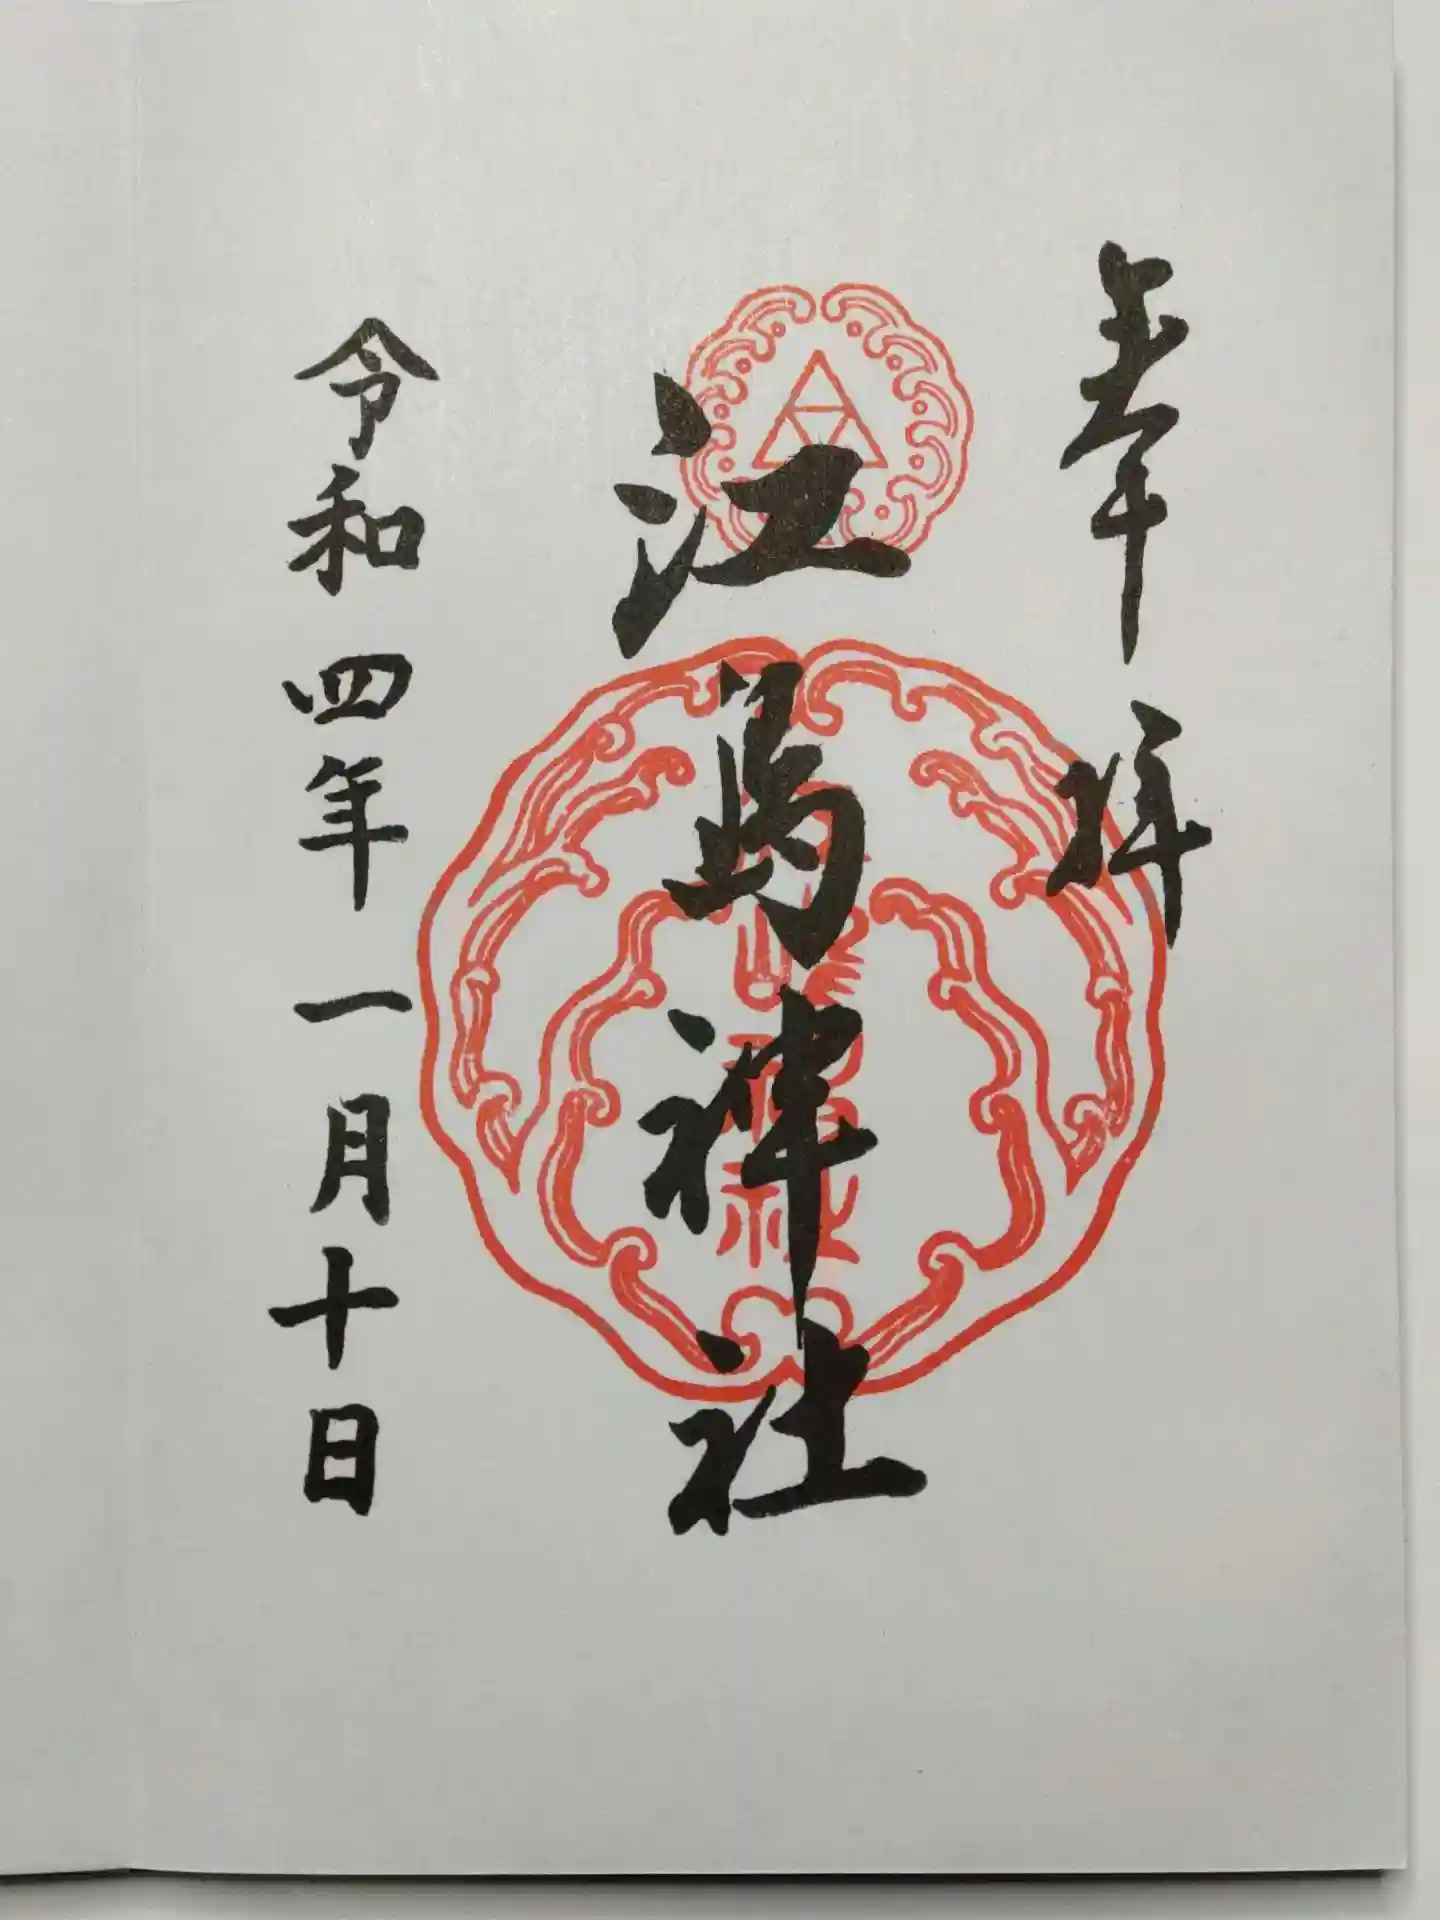 奉拝
江馬神社
令和四年一月十日